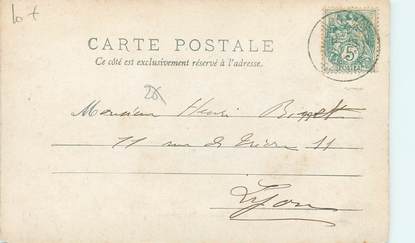 10 +
CARTE POSTALE
Ce côté est exclusivement réservé à l'adresse.
5
Monsieur Henri
11 rue de 11
Lyon